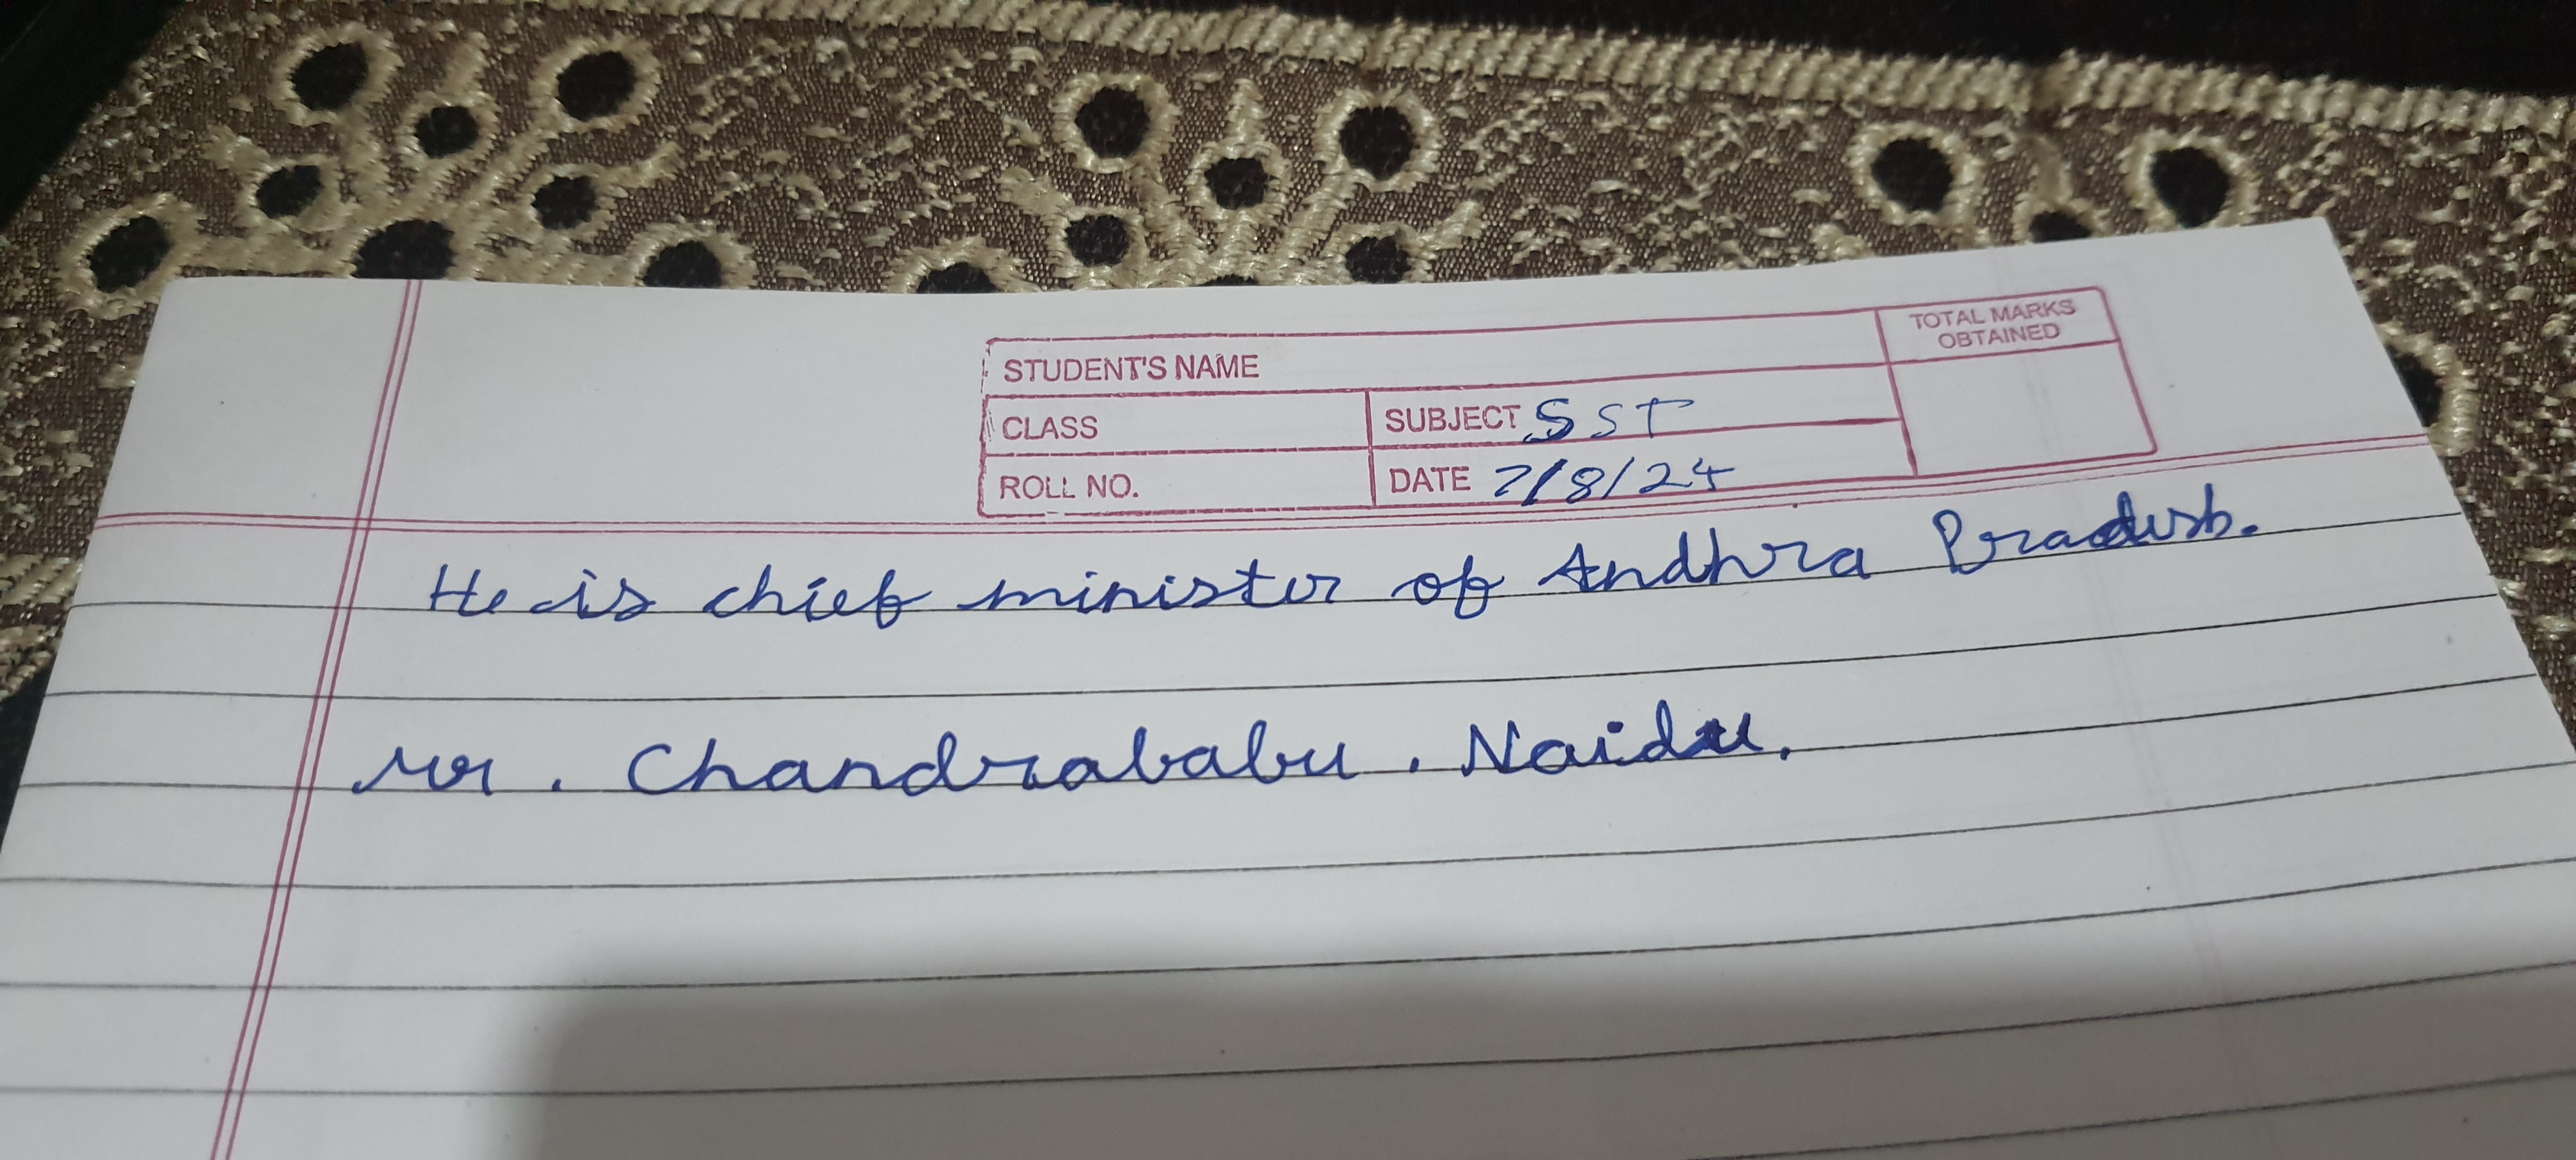 STUDENT'S NAME
TOTAL MARKS
OBTAINED
CLASS
SUBJECT SST
ROLL NO.
DATE 7/8/24
He is chief minister of Andhra Pradesh.
Mr. Chandrababu. Naidu.